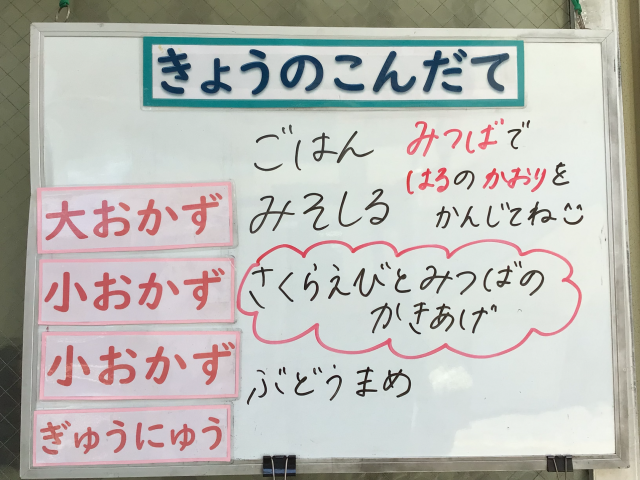 きょうのこんだて
ごはん
みつばで
はるのかおりを
かんじてね
大おかず
みそしる
小おかず
さくらえびとみつばの
かきあげ
小おかず
ぶどうまめ
ぎゅうにゅう